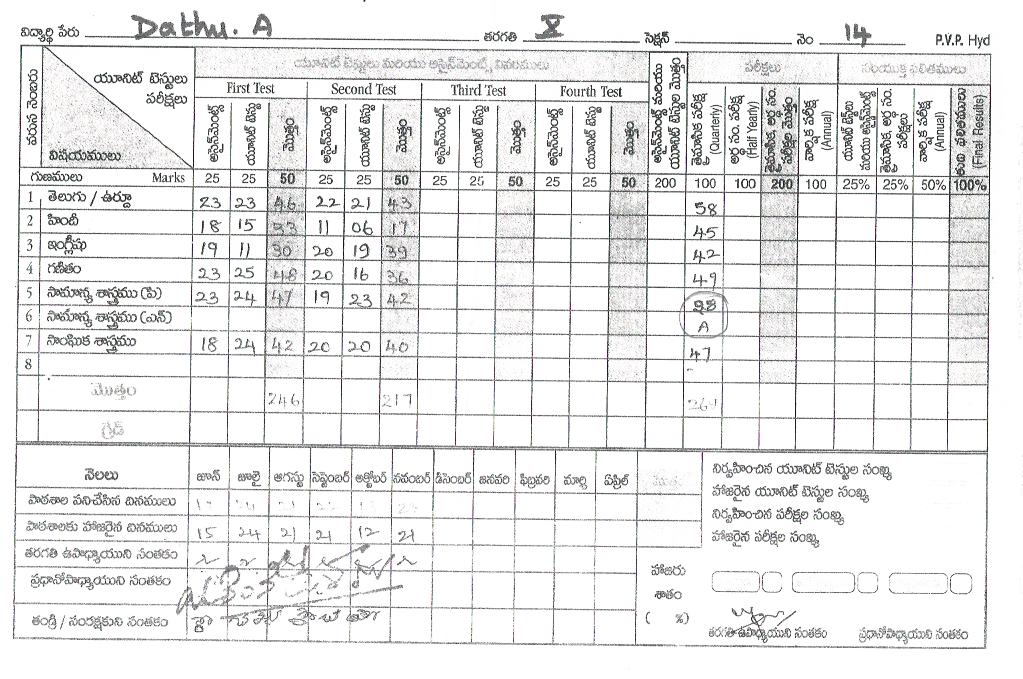 విద్యార్థి పేరు Dathu. A తరగతి X సెక్షన్ నెం 14 P.V.P. Hyd
వరుస నెంబరు యూనిట్ టెస్టులు పరీక్షలు విషయములు
యూనిట్ టెస్టులు మరియు అసైన్‌మెంట్స్ వివరములు పరీక్షలు సంయుక్త ఫలితములు
First Test Second Test Third Test Fourth Test
అసైన్‌మెంట్స్ యూనిట్ టెస్టు మొత్తం అసైన్‌మెంట్స్ యూనిట్ టెస్టు మొత్తం అసైన్‌మెంట్స్ యూనిట్ టెస్టు మొత్తం అసైన్‌మెంట్స్ యూనిట్ టెస్టు మొత్తం అసైన్‌మెంట్స్ మరియు యూనిట్ టెస్టుల మొత్తం త్రైమాసిక పరీక్ష (Quarterly) అర్ధ సం. పరీక్ష (Half Yearly) త్రైమాసిక, అర్ధ సం. పరీక్షల మొత్తం వార్షిక పరీక్ష (Annual) యూనిట్ టెస్టులు మరియు అసైన్‌మెంట్స్ త్రైమాసిక, అర్ధ సం. పరీక్షలు వార్షిక పరీక్ష (Annual) తుది ఫలితములు (Final Results)
గుణములు Marks 25 25 50 25 25 50 25 25 50 25 25 50 200 100 100 200 100 25% 25% 50% 100%
1 తెలుగు / ఉర్దూ 23 23 46 22 21 43 58
2 హిందీ 18 15 33 11 06 17 45
3 ఇంగ్లీషు 19 11 30 20 19 39 42
4 గణితం 23 25 48 20 16 36 49
5 సామాన్య శాస్త్రము (పి) 23 24 47 19 23 42
6 సామాన్య శాస్త్రము (ఎన్) A
7 సాంఘిక శాస్త్రము 18 24 42 20 20 40 47
8
మొత్తం 246 217
గ్రేడ్
నెలలు జూన్ జూలై ఆగస్టు సెప్టెంబర్ అక్టోబర్ నవంబర్ డిసెంబర్ జనవరి ఫిబ్రవరి మార్చి ఏప్రిల్ మొత్తం
పాఠశాల పనిచేసిన దినములు
పాఠశాలకు హాజరైన దినములు 15 24 21 21 12 21
తరగతి ఉపాధ్యాయుని సంతకం
ప్రధానోపాధ్యాయుని సంతకం
తండ్రి / సంరక్షకుని సంతకం
నిర్వహించిన యూనిట్ టెస్టుల సంఖ్య
హాజరైన యూనిట్ టెస్టుల సంఖ్య
నిర్వహించిన పరీక్షల సంఖ్య
హాజరైన పరీక్షల సంఖ్య
హాజరు
శాతం
( %)
తరగతి ఉపాధ్యాయుని సంతకం ప్రధానోపాధ్యాయుని సంతకం